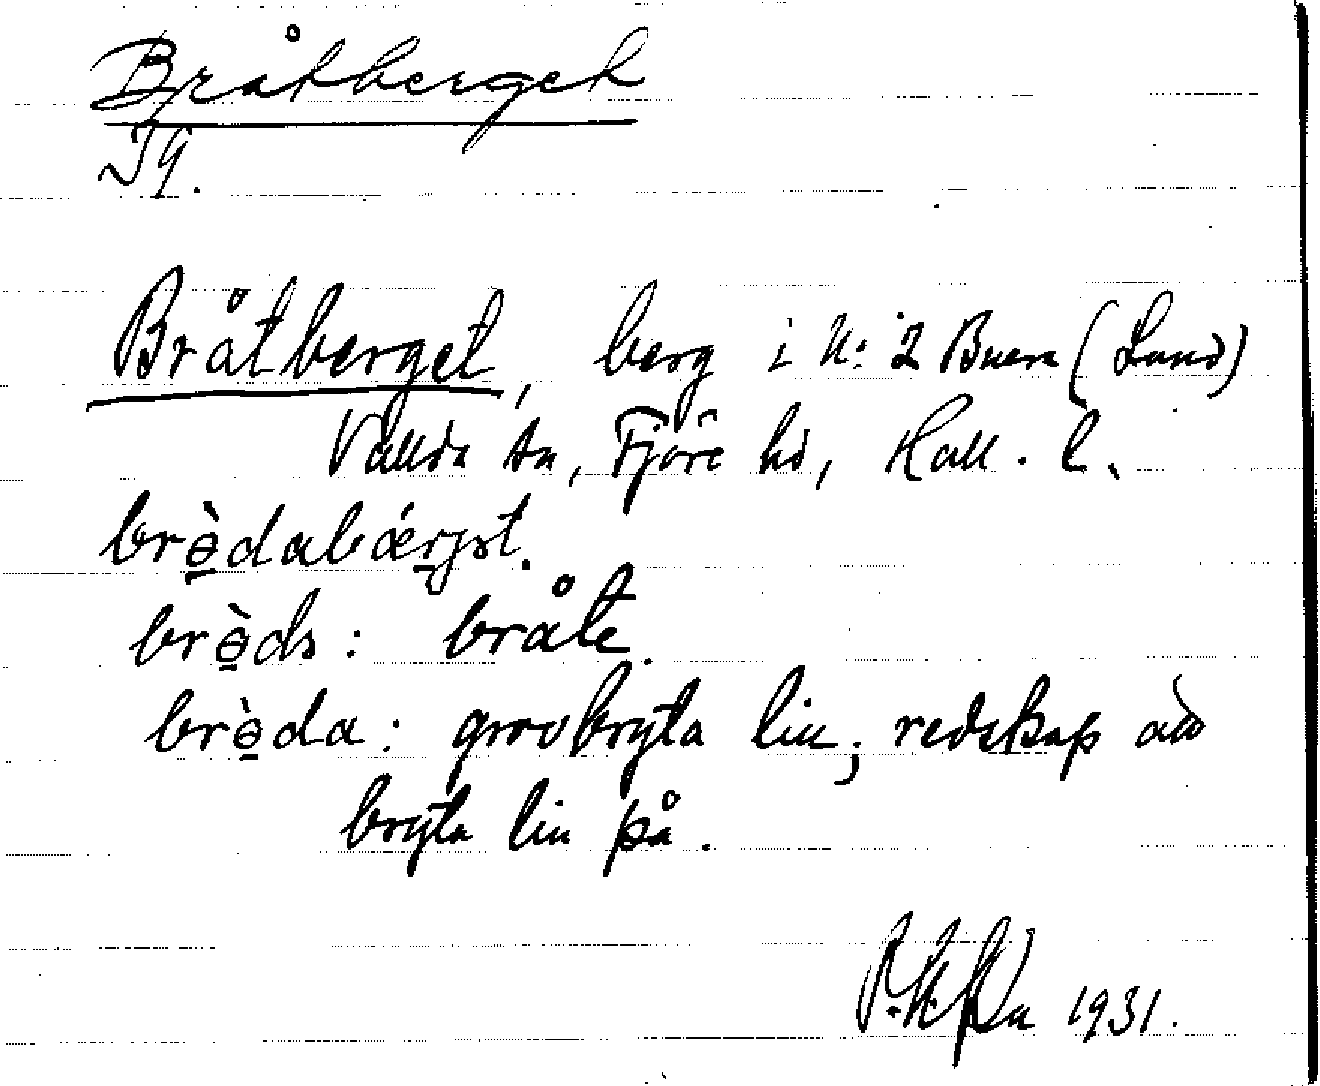 Bråtberget
Tg.
Bråtberget, berg i N: 2 Buera (Lund)
Vallda sn, Fjäre hd, Hall. l.
brɵ̀dabǽrjət.
brɵ̀də: bråte.
brɵ̀da: grovbryta lin; redskap att
bryta lin på.
1931.